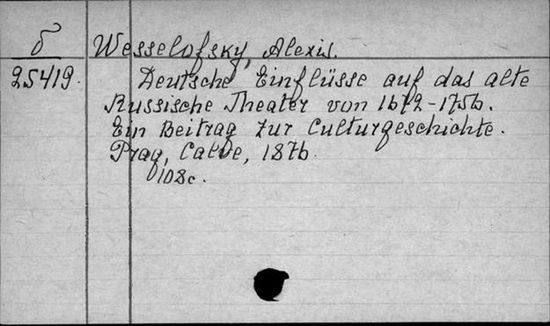 δ Wesselofsky, Alexis.
25419. Deutsche Einflüsse auf das alte
Russische Theater von 1672-1756.
Ein Beitrag zur Culturgeschichte.
Prag, Calve, 1876.
108c.